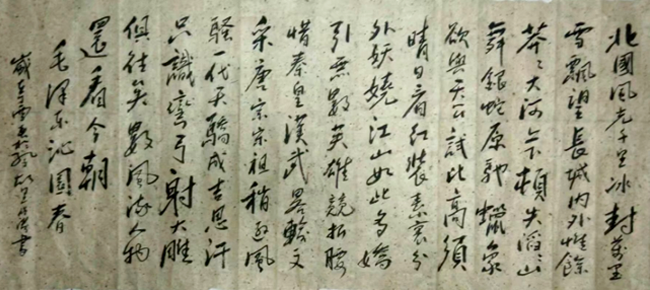 北國風光千里冰封萬里
雪飄望長城內外惟餘
莽々大河上下頓失滔々山
舞銀蛇原馳蠟象
欲與天公試比高須
晴日看紅裝素裹分
外妖嬈江山如此多嬌
引無數英雄競折腰
惜秦皇漢武略輸文
采唐宗宋祖稍遜風
騷一代天驕成吉思汗
只識彎弓射大雕
俱往矣數風流人物
還看今朝
毛澤東沁園春
歲在書